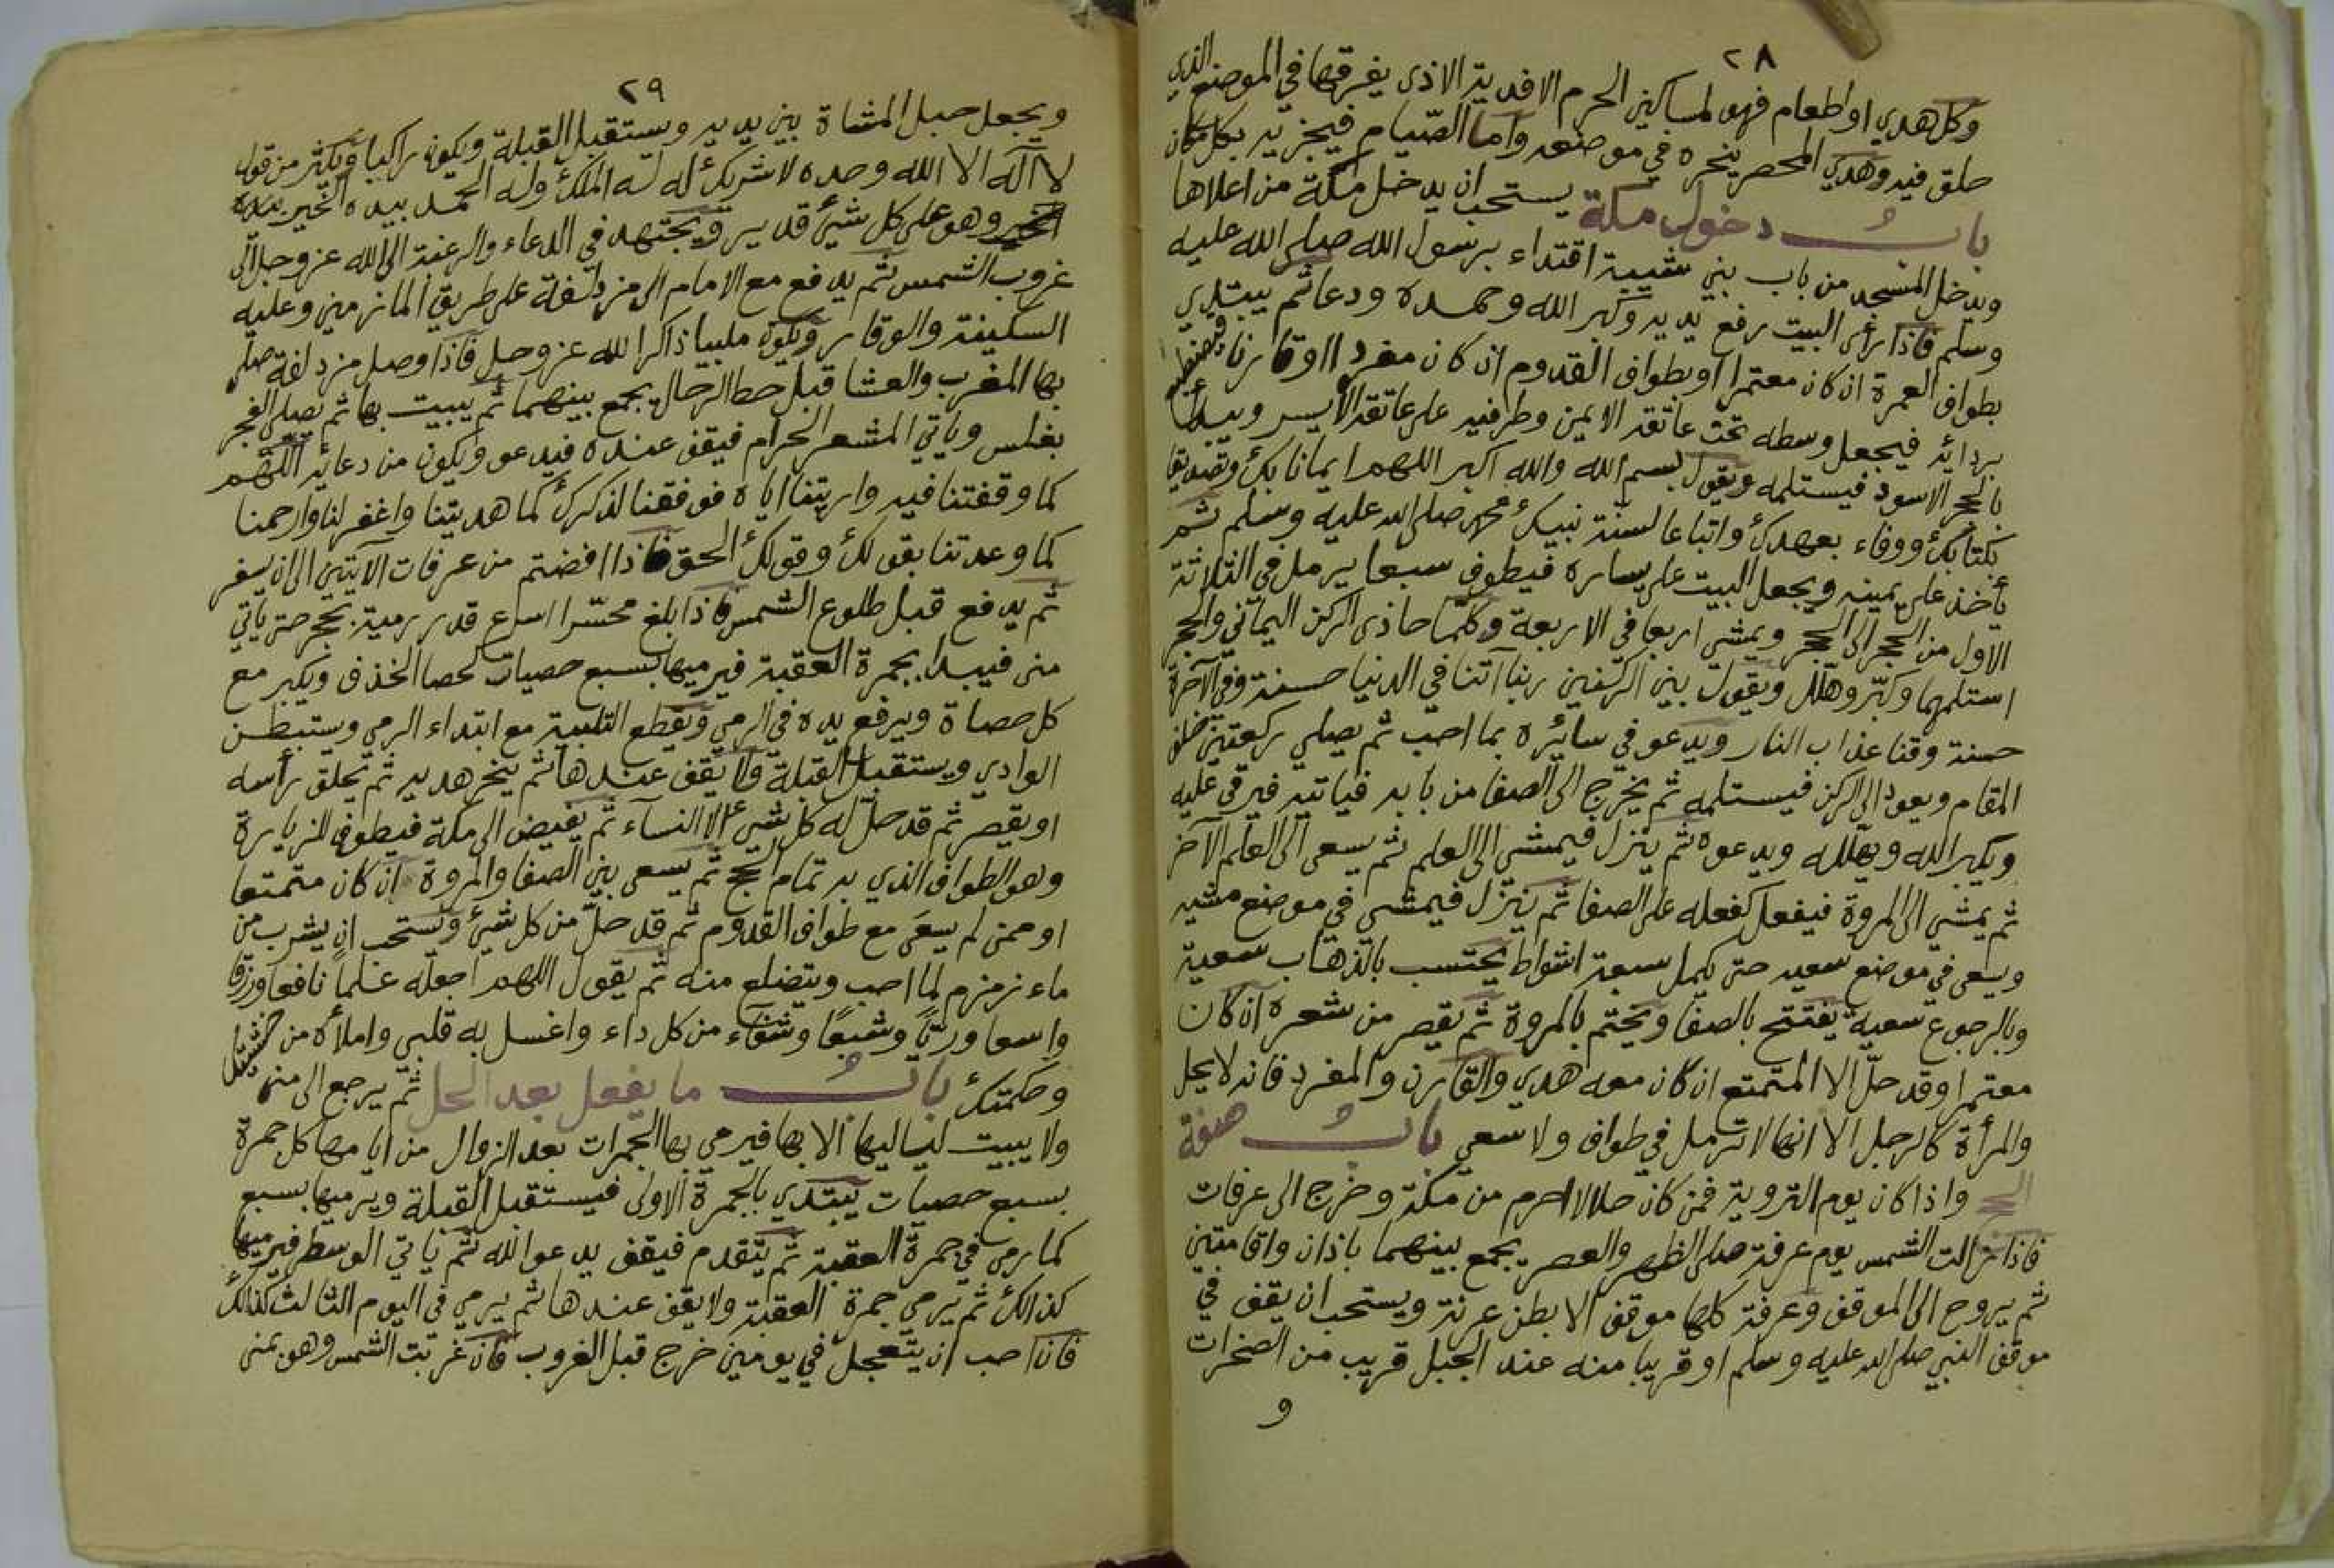 ٢٨
وكل هدي او اطعام فهو لمساكين الحرم الا فدية الاذى يفرقها في الموضع الذي
حلق فيه وهدي المحصر ينحره في موضعه واما الصيام فيجزيه بكل مكان
باب دخول مكة يستحب ان يدخل مكة من اعلاها
ويدخل المسجد من باب بني شيبة اقتداء برسول الله صلى الله عليه
وسلم فاذا رأى البيت رفع يديه وكبر الله وحمده ودعا ثم يبتدي
بطواف العمرة ان كان معتمرا او بطواف القدوم ان كان مفردا او قارنا فيضطبع
بردائه فيجعل وسطه تحت عاتقه الايمن وطرفيه على عاتقه الأيسر ويبدأ
بالحجر الاسود فيستلمه ويقول بسم الله والله اكبر اللهم ايمانا بك وتصديقا
بكتابك ووفاء بعهدك واتباعا لسنة نبيك محمد صلى الله عليه وسلم ثم
يأخذ على يمينه ويجعل البيت على يساره فيطوف سبعا يرمل في الثلاثة
الاول من الحجر الى الحجر ويمشي اربعا في الاربعة وكلما حاذى الركن اليماني والحجر
استلمهما وكبر وهلل ويقول بين الركنين ربنا آتنا في الدنيا حسنة وفي الآخرة
حسنة وقنا عذاب النار ويدعو في سائره بما احب ثم يصلي ركعتين خلف
المقام ويعود الى الركن فيستلمه ثم يخرج الى الصفا من بابه فياتيه فيرقى عليه
ويكبر الله ويهلله ويدعوه ثم ينزل فيمشي الى العلم ثم يسعى الى العلم الآخر
ثم يمشي الى المروة فيفعل كفعله على الصفا ثم ينزل فيمشي في موضع مشيه
ويسعى في موضع سعيه حتى يكمل سبعة اشواط يحتسب بالذهاب سعية
وبالرجوع سعية يفتتح بالصفا ويختم بالمروة ثم يقصر من شعره ان كان
معتمرا وقد حل الا المتمتع ان كان معه هدي والقارن والمفرد فانه لا يحل
والمرأة كالرجل الا انها لا ترمل في طواف ولا سعي باب صفة
الحج واذا كان يوم التروية فمن كان حلالا احرم من مكة وخرج الى عرفات
فاذا زالت الشمس يوم عرفة صلى الظهر والعصر يجمع بينهما باذان واقامتين
ثم يروح الى الموقف وعرفة كلها موقف الا بطن عرنة ويستحب ان يقف في
موقف النبي صلى الله عليه وسلم او قريبا منه عند الجبل قريب من الصخرات
و
٢٩
ويجعل حبل المشاة بين يديه ويستقبل القبلة ويكون راكبا ويكثر من قول
لا اله الا الله وحده لا شريك له له الملك وله الحمد بيده الخير بيده
الخير وهو على كل شيئ قدير ويجتهد في الدعاء والرغبة الى الله عز وجل الى
غروب الشمس ثم يدفع مع الامام الى مزدلفة على طريق المازمين وعليه
السكينة والوقار ويكون ملبيا ذاكرا لله عز وجل فاذا وصل مزدلفة صلى
بها المغرب والعشا قبل حط الرحال يجمع بينهما ثم يبيت بها ثم يصلي الفجر
بغلس وياتي المشعر الحرام فيقف عنده فيدعو ويكون من دعائه اللهم
كما وقفتنا فيه واريتنا اياه فوفقنا لذكرك كما هديتنا واغفر لنا وارحمنا
كما وعدتنا بقولك وقولك الحق فاذا افضتم من عرفات الآيتين الى ان يسفر
ثم يدفع قبل طلوع الشمس فاذا بلغ محسرا اسرع قدر رمية بحجر حتى ياتي
منى فيبدا بجمرة العقبة فيرميها بسبع حصيات كحصا الخذف ويكبر مع
كل حصاة ويرفع يده في الرمي ويقطع التلبية مع ابتداء الرمي ويستبطن
الوادي ويستقبل القبلة ولا يقف عندها ثم ينحر هديه ثم يحلق رأسه
او يقصر ثم قد حل له كل شيئ الا النساء ثم يفيض الى مكة فيطوف للزيارة
وهو الطواف الذي به تمام الحج ثم يسعى بين الصفا والمروة ان كان متمتعا
او ممن لم يسعى مع طواف القدوم ثم قد حل من كل شيئ ويستحب ان يشرب من
ماء زمزم لما احب ويتضلع منه ثم يقول اللهم اجعله علما نافعا ورزقا
واسعا وريا وشبعا وشفاء من كل داء واغسل به قلبي واملأه من خشيتك
وحكمتك باب ما يفعل بعد الحل ثم يرجع الى منى
ولا يبيت لياليها الا بها فيرمي بها الجمرات بعد الزوال من ايامها كل جمرة
بسبع حصيات يبتدي بالجمرة الاولى فيستقبل القبلة ويرميها بسبع
كما رمى في جمرة العقبة ثم يتقدم فيقف يدعو الله ثم ياتي الوسطى فيرميها
كذالك ثم يرمي جمرة العقبة ولا يقف عندها ثم يرمي في اليوم الثالث كذالك
فان احب ان يتعجل في يومين خرج قبل الغروب فان غربت الشمس وهو بمنى